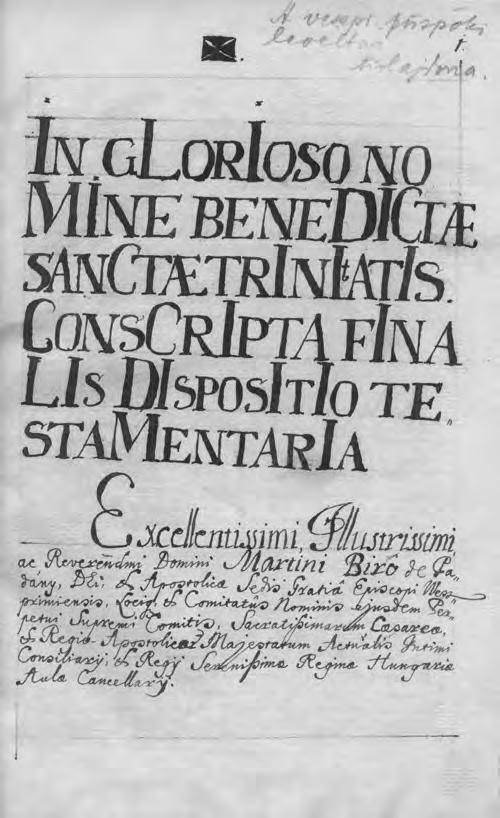 A veszpr. püspöki
levéltár
tulajdona.
1.
IN GLORIOSO NO
MINE BENEDICTÆ
SANCTÆ TRINItATIS.
CONSCRIPTA FINA
LIS DISPOSITIO TE„
STAMENTARIA
Excellentissimi, Illustrissimi
ac Reverendmi Domini Martini Biró de Pa„
dány, DEI, & Apostolicæ Sedis Gratia Episcopi Wesz„
primiensis, Lociq, & Comitatus Nominis ejusdem Per„
petui Supremi Comitis, Sacratissimarum Cæsareæ,
& Regiæ Apostolicæ Majestatum Actualis Intimi
Consiliarij, & Regij Serenissimæ Reginæ Hungariæ
Aulæ Cancellarij.